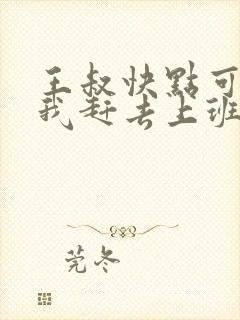 王叔快點可
我赶去上班
莞冬